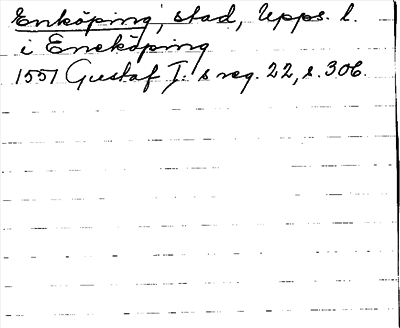 Enköping, stad, Upps. l.
i Eneköping
1551 Gustaf I:s reg. 22, s. 306.